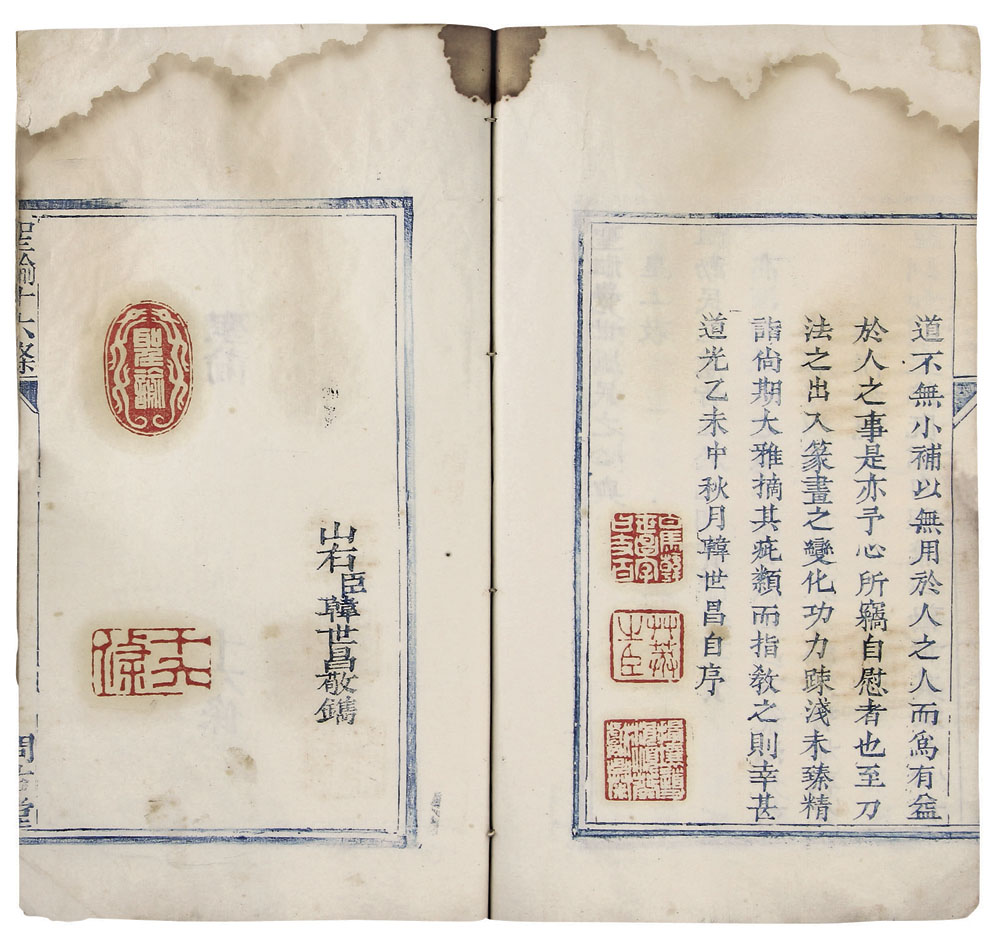 道不無小補以無用於人之人而爲有益
於人之事是亦予心所竊自慰者也至刀
法之出入篆畫之變化功力疎淺未臻精
詣尙期大雅摘其疵纇而指敎之則幸甚
道光乙未中秋月韓世昌自序
之臣
聖諭
山右臣韓世昌敬鐫
十六條
聖諭十六條